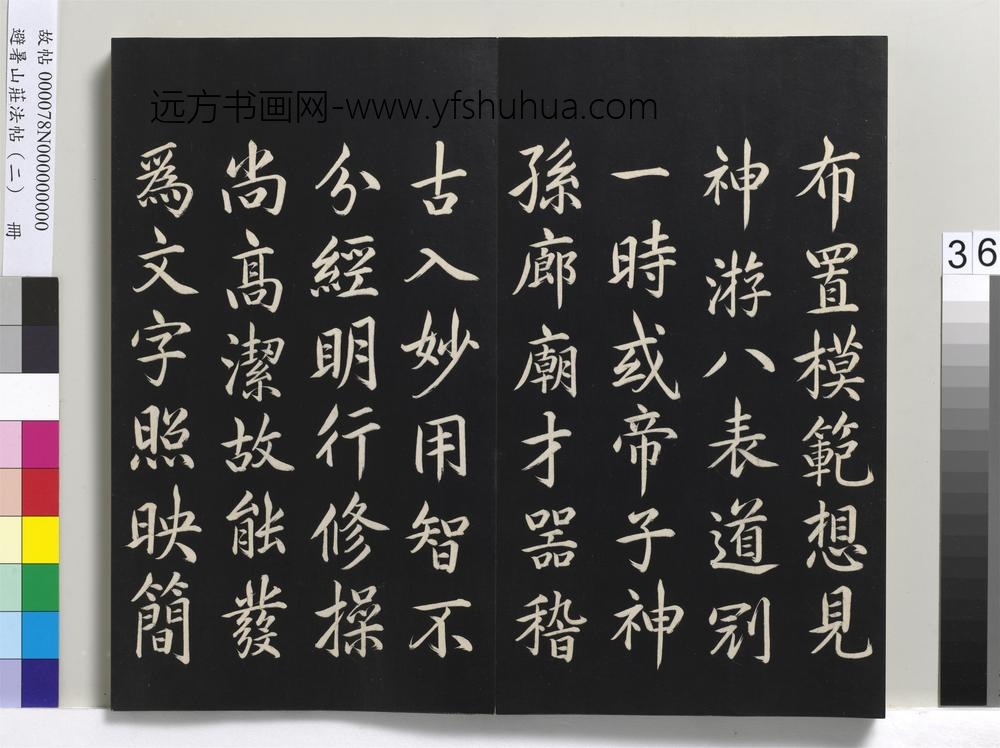 布置模範想見
神游八表道冠
一時或帝子神
孫廊廟才噐稽
古入妙用智不
分經眀行修操
尚髙潔故能發
爲文字照映簡
远方书画网-www.yfshuhua.com
故帖 000078N000000000
避暑山莊法帖(二) 冊
36